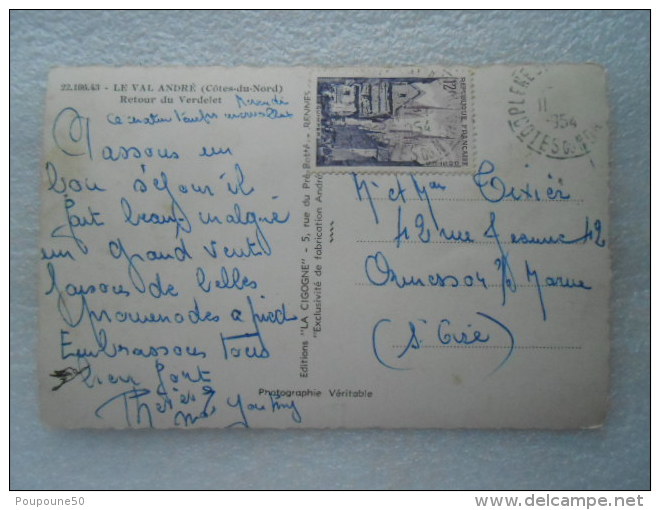 22.106.43 - LE VAL ANDRÉ (Côtes-du-Nord)
Retour du Verdelet
ce matin temps
Passons un
bon séjour il
fait beau malgré
un grand vent
faisons de belles
promenades a pied
Embrassons tous
bien fort
Thérèse
Editions "LA CIGOGNE" - 5, rue du Pré-Botté - RENNES
"Exclusivité de fabrication André
Photographie Véritable
12F
REPUBLIQUE FRANÇAISE
11
1954
COTES DU NORD
Mr et Mme Texier
42 rue Jeanne 42
Ormesson s/ Marne
(St Oise)
Poupoune50